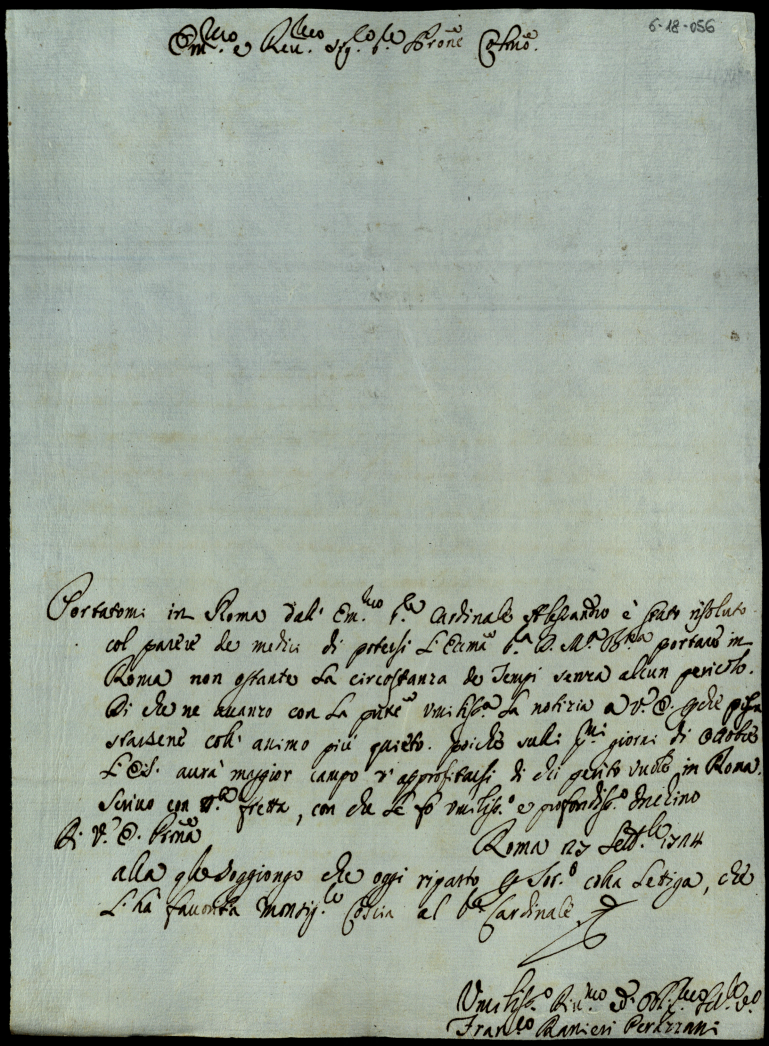 6-18-056
Em.mo e Reu.mo Sig.r S.r Prone Colmo.
Portatomi in Roma dall' Em.mo S.r Cardinale Alessandro è stato risoluto
col parere de medici di potersi L'Eccma S.ra D. M.a portare in
Roma non ostante La circostanza de Tempi senza alcun pericolo.
Di che ne auanzo con La pnte vmiliss.a La notizia a V.ra E. pche possa
starsene coll' animo più quieto. poiche sulli p.mi giorni di Ottobre
L'Ecc. aurà maggior campo d'approfittarsi di chi perito vuole in Roma.
Scriuo con fretta, con che Le fò vmiliss.o e profondiss.o Inchino
Di V.ra E. Prona
Roma 27 Sett.bre 1714
alla qle soggiongo che oggi riparto p Sor.o colla Letiga, che
L'hà fauorita Monsig.re Coscia al S.r Cardinale
Vmiliss.o Diu.mo ed Obl.mo Ser.e
Fran.co Ranieri Perizzani